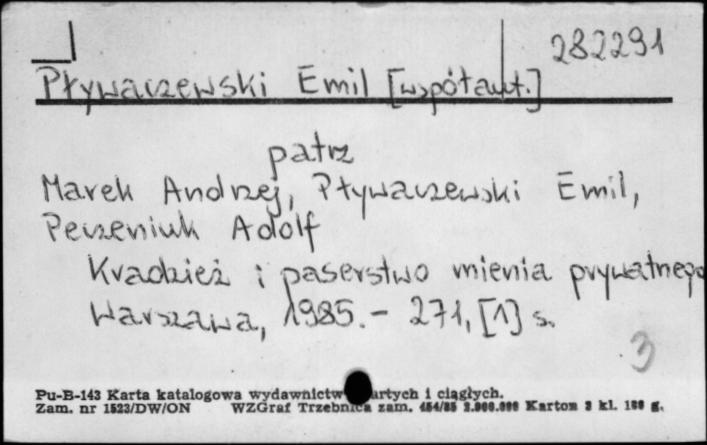 282291
Pływaczewski Emil [współaut.]
patrz
Marek Andrzej, Pływaczewski Emil,
Peczeniuk Adolf
Kradzież i paserstwo mienia prywatnego
Warszawa, 1985.- 271, [1] s.
3
Pu-B-143 Karta katalogowa wydawnictw artych i ciągłych.
Zam. nr 1523/DW/ON WZGraf Trzebnica zam. 454/85 2.000.000 Karton 3 kl. g.